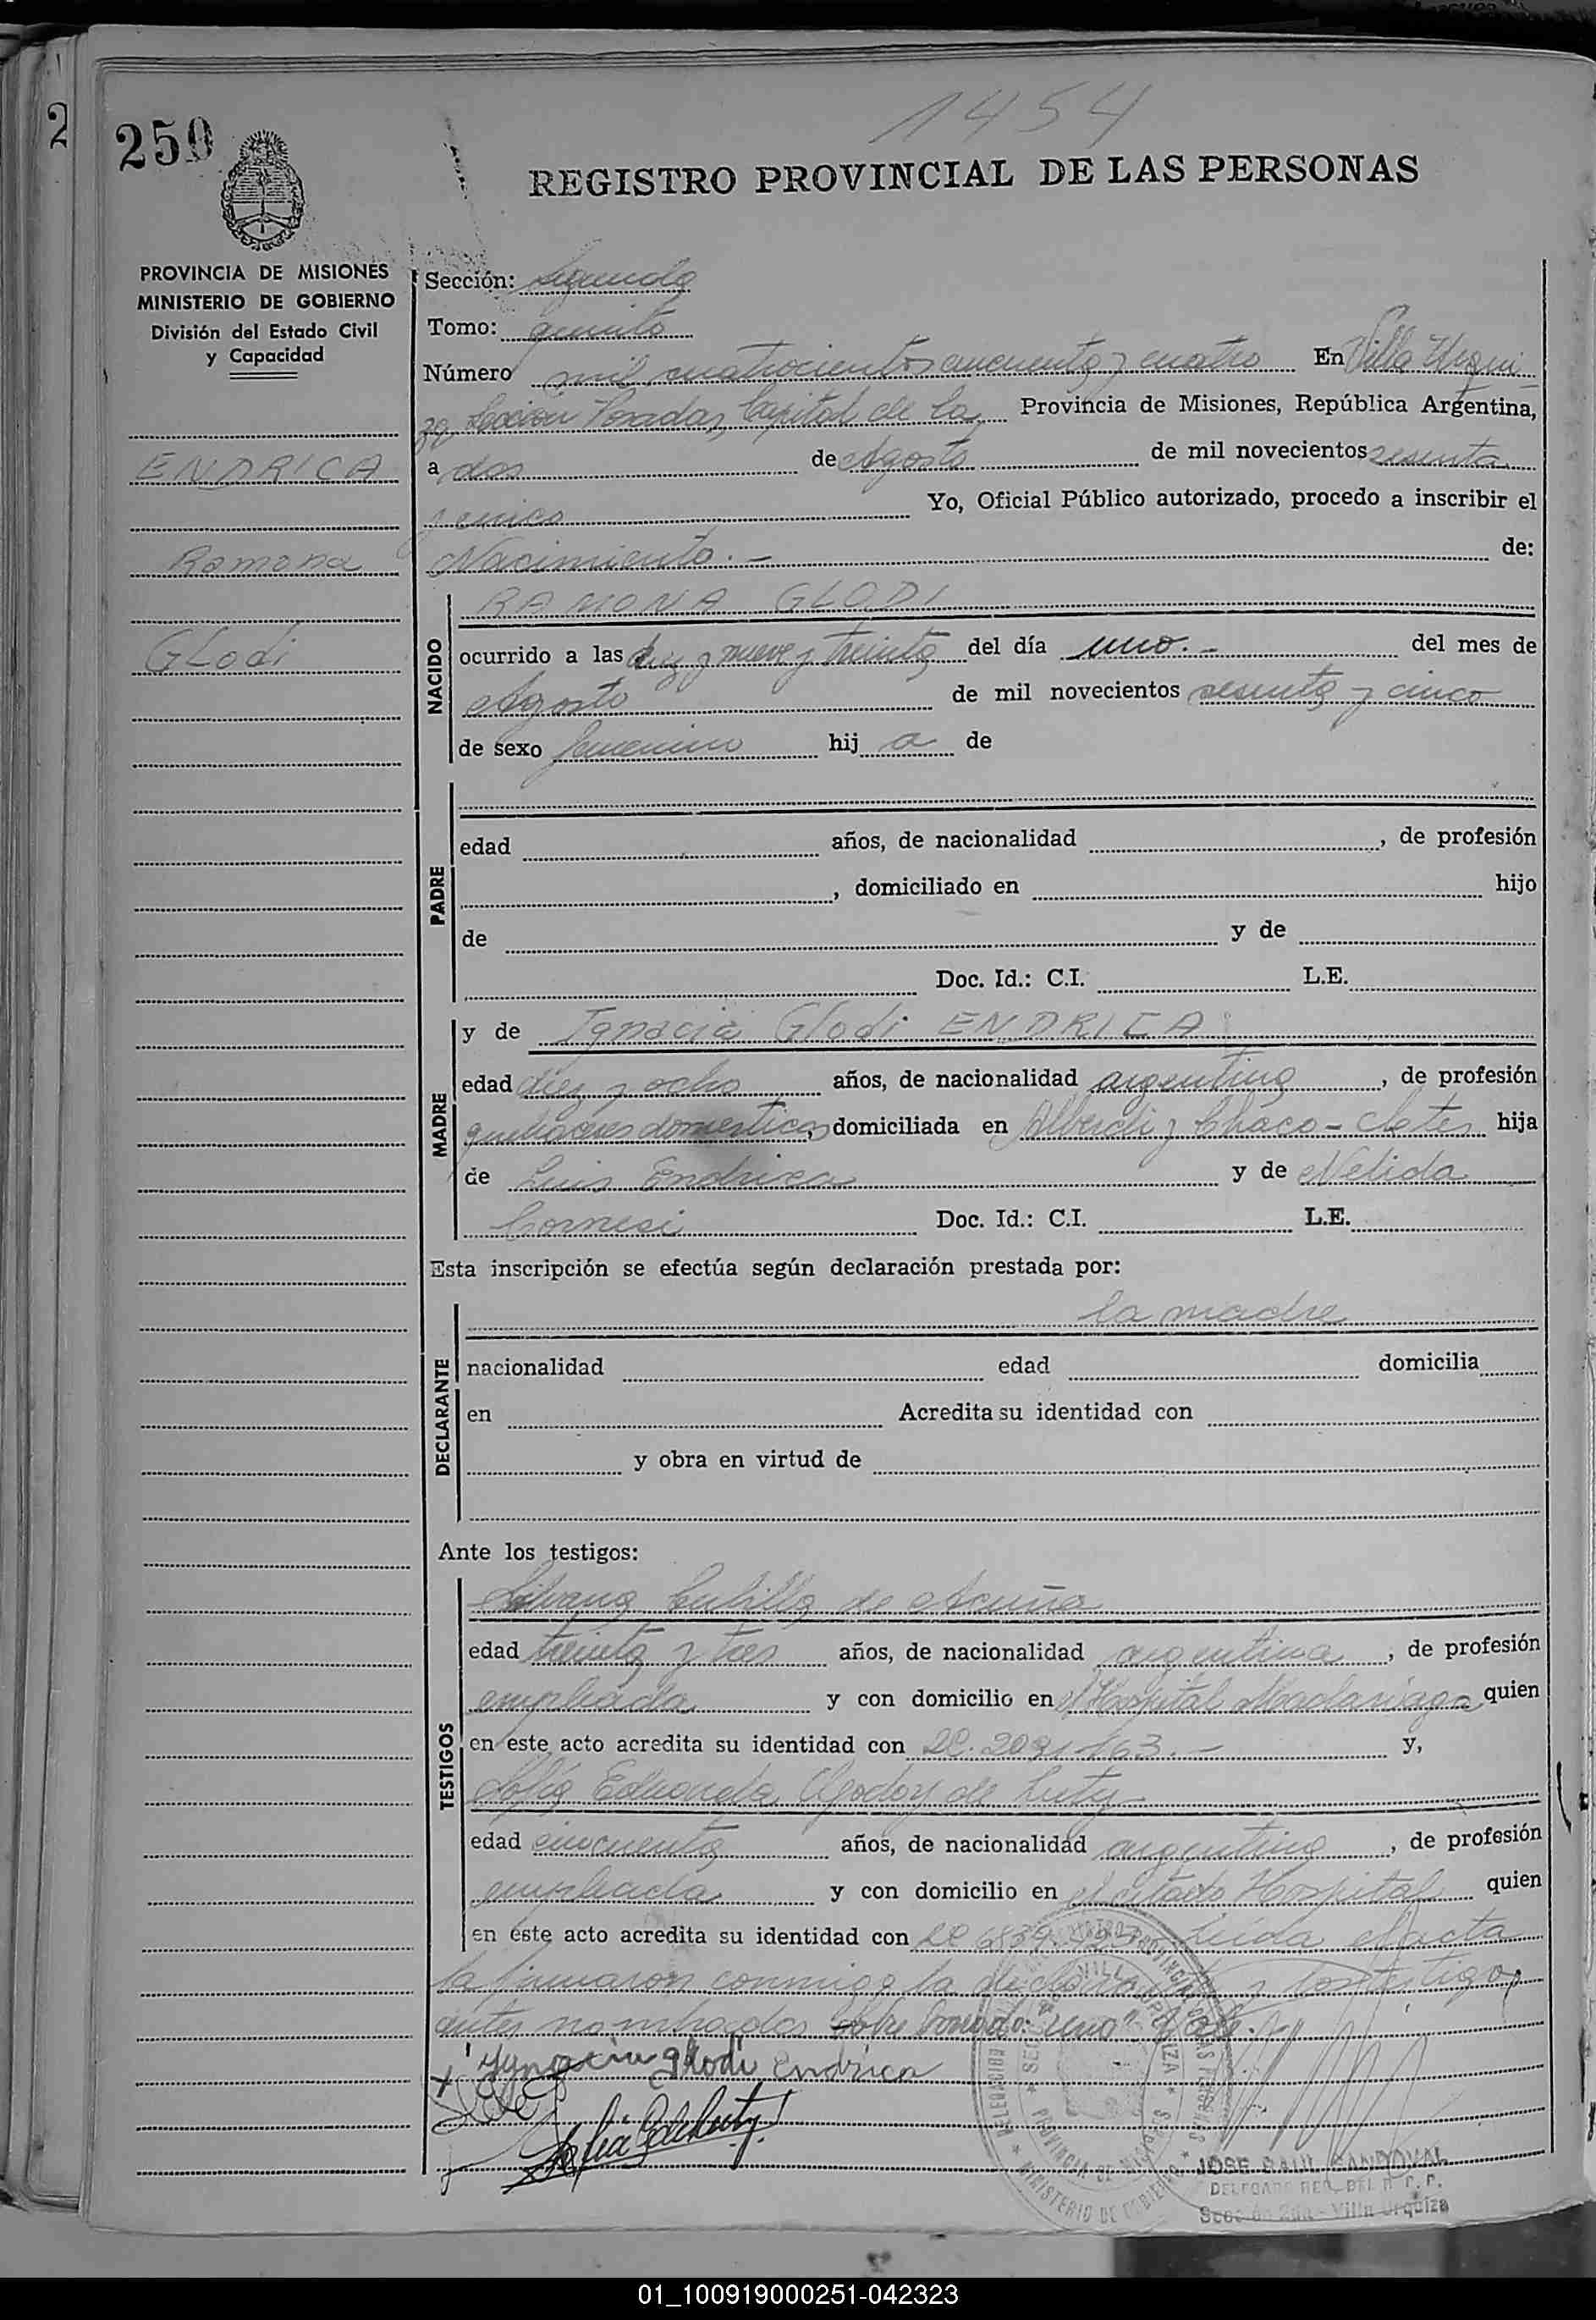 1454
2
250
REGISTRO PROVINCIAL DE LAS PERSONAS
PROVINCIA DE MISIONES
MINISTERIO DE GOBIERNO
División del Estado Civil
y Capacidad
ENDRICA
Ramona
GLodi
Sección: Segunda
Tomo: quinto
Número mil cuatrocientos cincuenta y cuatro En Villa Urqui-
za Sección Posadas, Capital de la Provincia de Misiones, República Argentina,
a dos de Agosto de mil novecientos sesenta
y cinco Yo, Oficial Público autorizado, procedo a inscribir el
Nacimiento.- de:
NACIDO
RAMONA GLODI
ocurrido a las diez y nueve y treinta del día uno.- del mes de
Agosto de mil novecientos sesenta y cinco
de sexo femenino hij a de
PADRE
edad años, de nacionalidad , de profesión
, domiciliado en hijo
de y de
Doc. Id.: C.I. L.E.
MADRE
y de Ignacia Glodi ENDRICA
edad diez y ocho años, de nacionalidad argentina , de profesión
quehaceres domesticos, domiciliada en Alberdi y Chaco - hija
de Luis Endrica y de Nelida
Cornesi Doc. Id.: C.I. L.E.
Esta inscripción se efectúa según declaración prestada por:
DECLARANTE
la madre
nacionalidad edad domicilia
en Acredita su identidad con
y obra en virtud de
Ante los testigos:
TESTIGOS
Silvana Cubilla de Acuña
edad treinta y tres años, de nacionalidad argentina , de profesión
empleada y con domicilio en el Hospital Madariaga quien
en este acto acredita su identidad con y,
Sofia Eduarda Godoy de Luty
edad cincuenta años, de nacionalidad argentina , de profesión
empleada y con domicilio en el citado Hospital quien
en este acto acredita su identidad con Leida el acta
la firmaron conmigo la declarante y los testigos
antes nombrados sobre borrado: "uno" Vale.-
Ygnacia glodi Endrica
Sofia G de Luty
JOSE SAUL SANDOVAL
DELEGADO REG. DEL R. P. P.
Sección 2da - Villa Urquiza
01_100919000251-042323